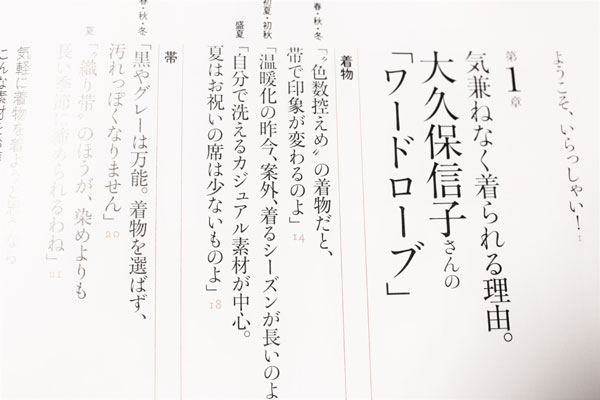 ようこそ、いらっしゃい！ 1
第1章
気兼ねなく着られる理由。
大久保信子さんの
「ワードローブ」
着物
春・秋・冬
「〝色数控えめ〟の着物だと、
帯で印象が変わるのよ」 14
初夏・初秋
「温暖化の昨今、案外、着るシーズンが長いのよ
盛夏
「自分で洗えるカジュアル素材が中心。
夏はお祝いの席は少ないものよ」 18
帯
春・秋・冬
「黒やグレーは万能。着物を選ばず、
汚れっぽくなりません」 20
夏
「〝織り帯〟のほうが、染めよりも
長い季節、締められるわね」 21
気軽に着物を着